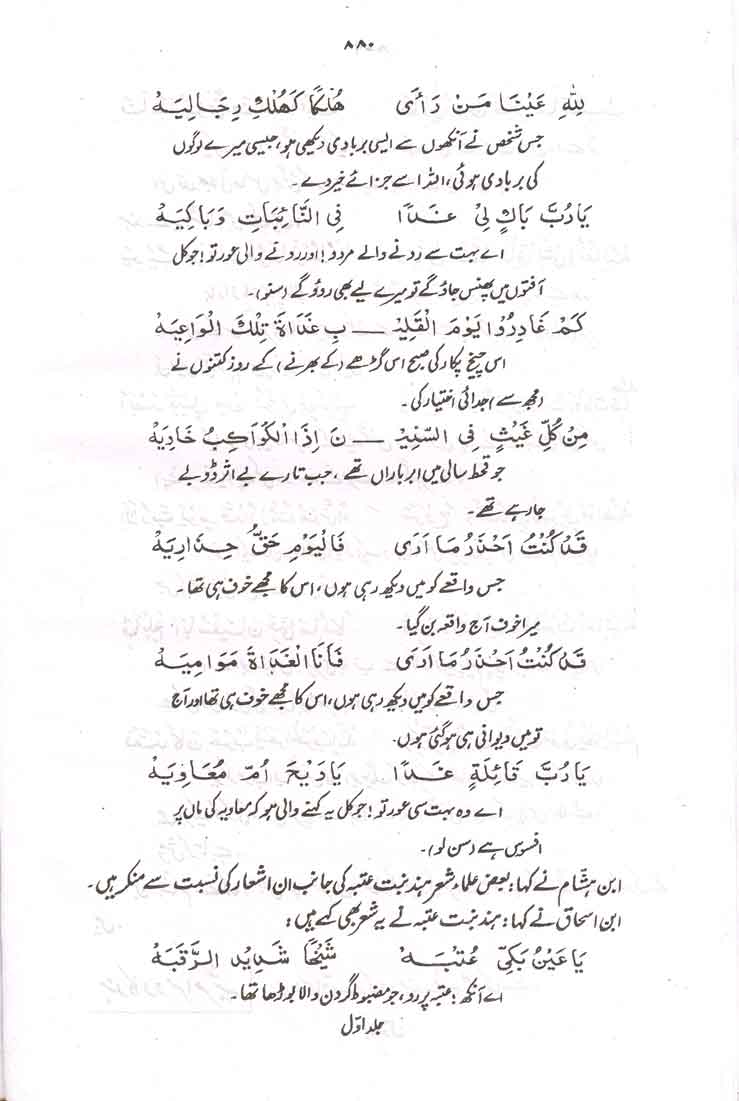 ۸۸۰
لِلّٰهِ عَيْنَا مَنْ رَأَى هُلْكًا كَهُلْكِ رِجَالِيَهْ
جس شخص نے آنکھوں سے ایسی بربادی دیکھی ہو، جیسی میرے لوگوں
کی بربادی ہوئی، اللہ اسے جزائے خیر دے۔
يَارُبَّ بَاكٍ لِيْ غَدًا فِي النَّائِبَاتِ وَبَاكِيَهْ
اے بہت سے رونے والے مردو! اور رونے والی عورتو! جو کل
آفتوں میں پھنس جاؤ گے تو میرے لیے بھی روؤ گے (سنو)۔
كَمْ غَادِرُوا يَوْمَ الْقَلِيْـــبِ غَدَاةَ تِلْكَ الْوَاعِيَهْ
اس چیخ پکار کی صبح اس گڑھے (کے بھرنے) کے روز کتنوں نے
(مجھ سے) جدائی اختیار کی۔
مِنْ كُلِّ غَيْثٍ فِي السِّنِيْـــنَ إِذَا الْكَوَاكِبُ خَاوِيَهْ
جو قحط سالی میں ابر باراں تھے، جب تارے بے اثر ڈوبے
جا رہے تھے۔
قَدْ كُنْتُ اَحْذَرُ مَا اَرَى فَالْيَوْمَ حَقٌّ حِذَارِيَهْ
جس واقعے کو میں دیکھ رہی ہوں، اس کا مجھے خوف ہی تھا۔
میرا خوف آج واقعہ بن گیا۔
قَدْ كُنْتُ اَحْذَرُ مَا اَرَى فَاَنَا الْغَدَاةَ مَوَامِيَهْ
جس واقعے کو میں دیکھ رہی ہوں، اس کا مجھے خوف ہی تھا اور آج
تو میں دیوانی ہی ہو گئی ہوں۔
يَارُبَّ قَائِلَةٍ غَدًا يَاوَيْحَ اُمِّ مُعَاوِيَهْ
اے وہ بہت سی عورتو! جو کل یہ کہنے والی ہو کہ معاویہ کی ماں پر
افسوس ہے (سن لو)۔
ابن ہشام نے کہا: بعض علماء شعر ہند بنت عتبہ کی جانب ان اشعار کی نسبت سے منکر ہیں۔
ابن اسحاق نے کہا: ہند بنت عتبہ نے یہ شعر بھی کہے ہیں:
يَاعَيْنُ بَكِّي عُتْبَهْ شَيْخًا شَدِيْدَ الرَّقَبَهْ
اے آنکھ! عتبہ پر رو، جو مضبوط گردن والا بوڑھا تھا۔
جلد اوّل